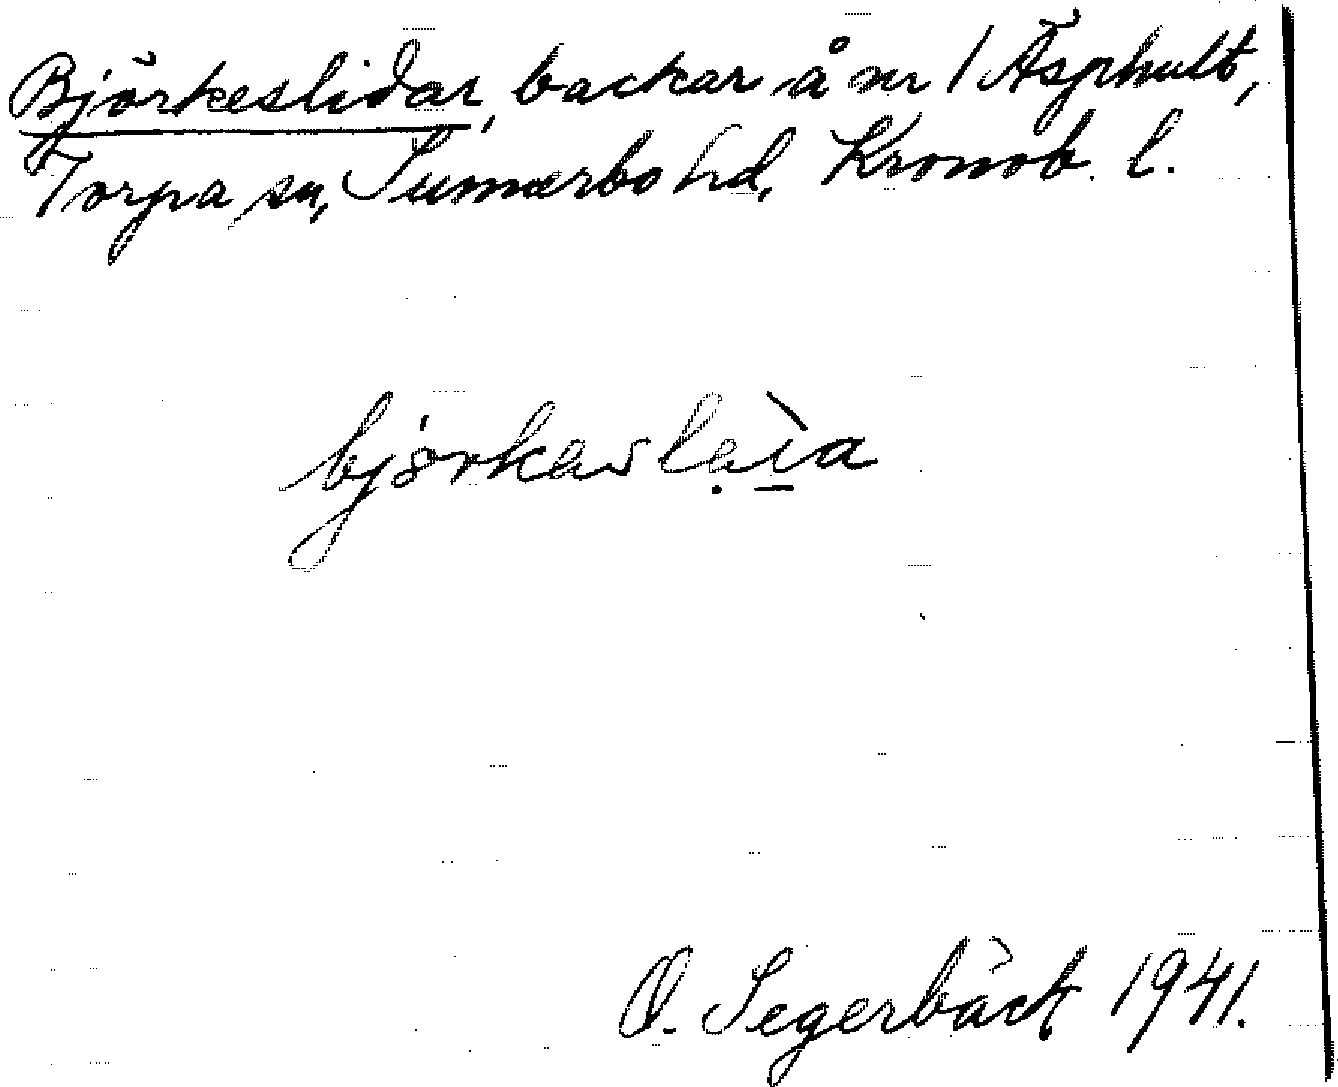 Björkeslidar, backar å nr 1 Äsphult,
Torpa sn, Sunnerbo hd, Kronob. l.
björkaslaìa
O. Segerbäck 1941.